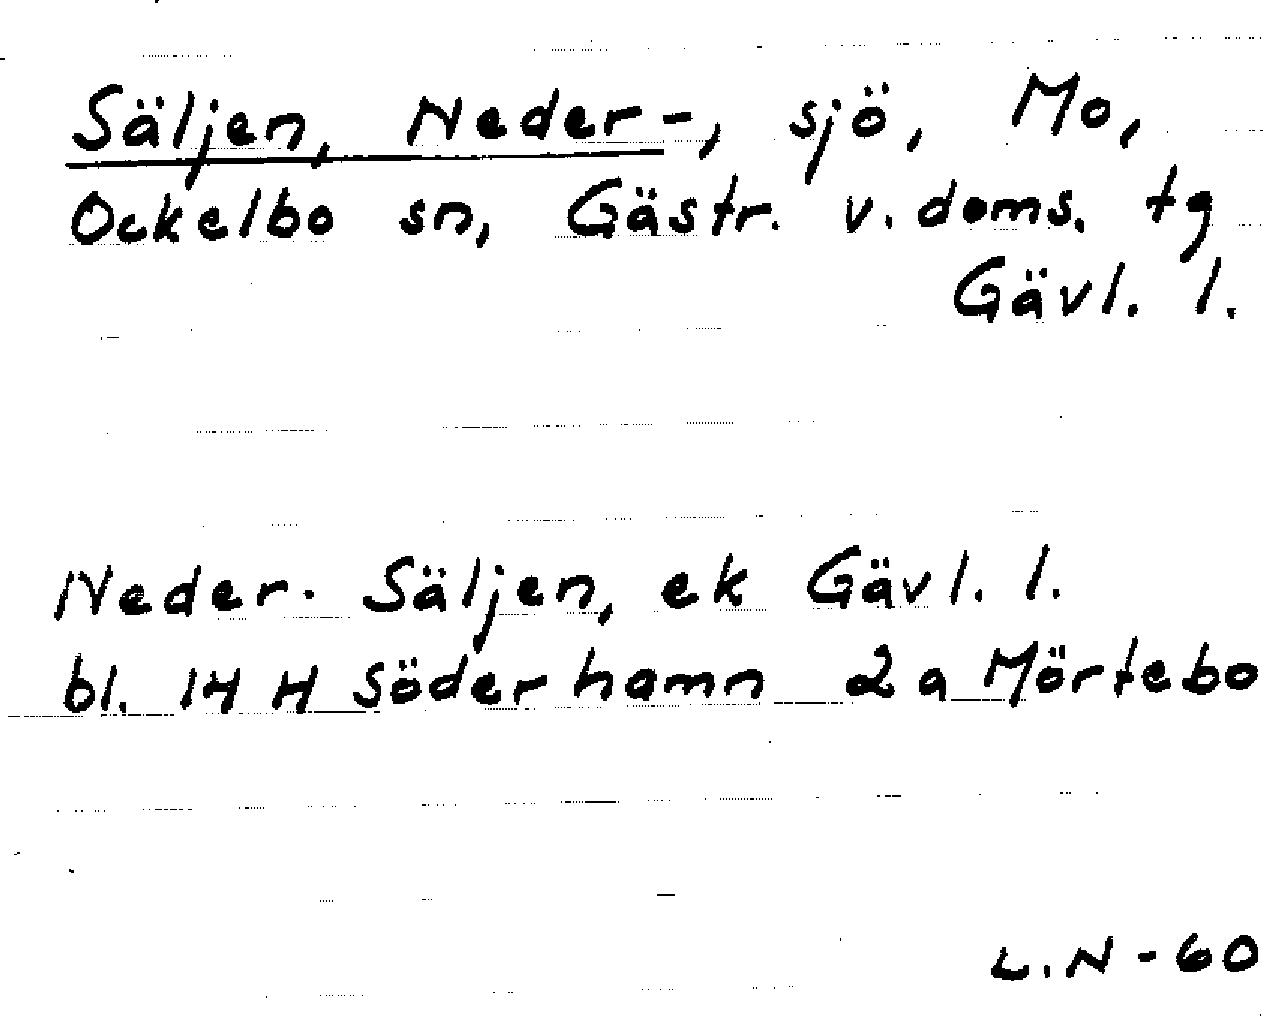 Säljen, Neder-, sjö, Mo,
Ockelbo sn, Gästr. v. doms. tg
Gävl. l.
Neder- Säljen, ek Gävl. l.
bl. 14 H Söderhamn 2 a Mörtebo
L.N-60